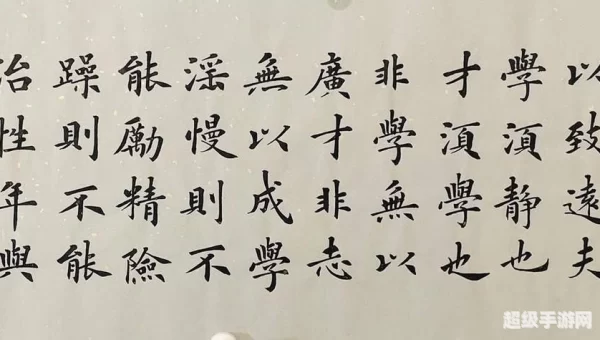 以致遠夫
學湏静也
才湏學也
非學無以
廣才非志
無以成學
滛慢則不
能勵精險
躁則不能
治性年與
超级手游网